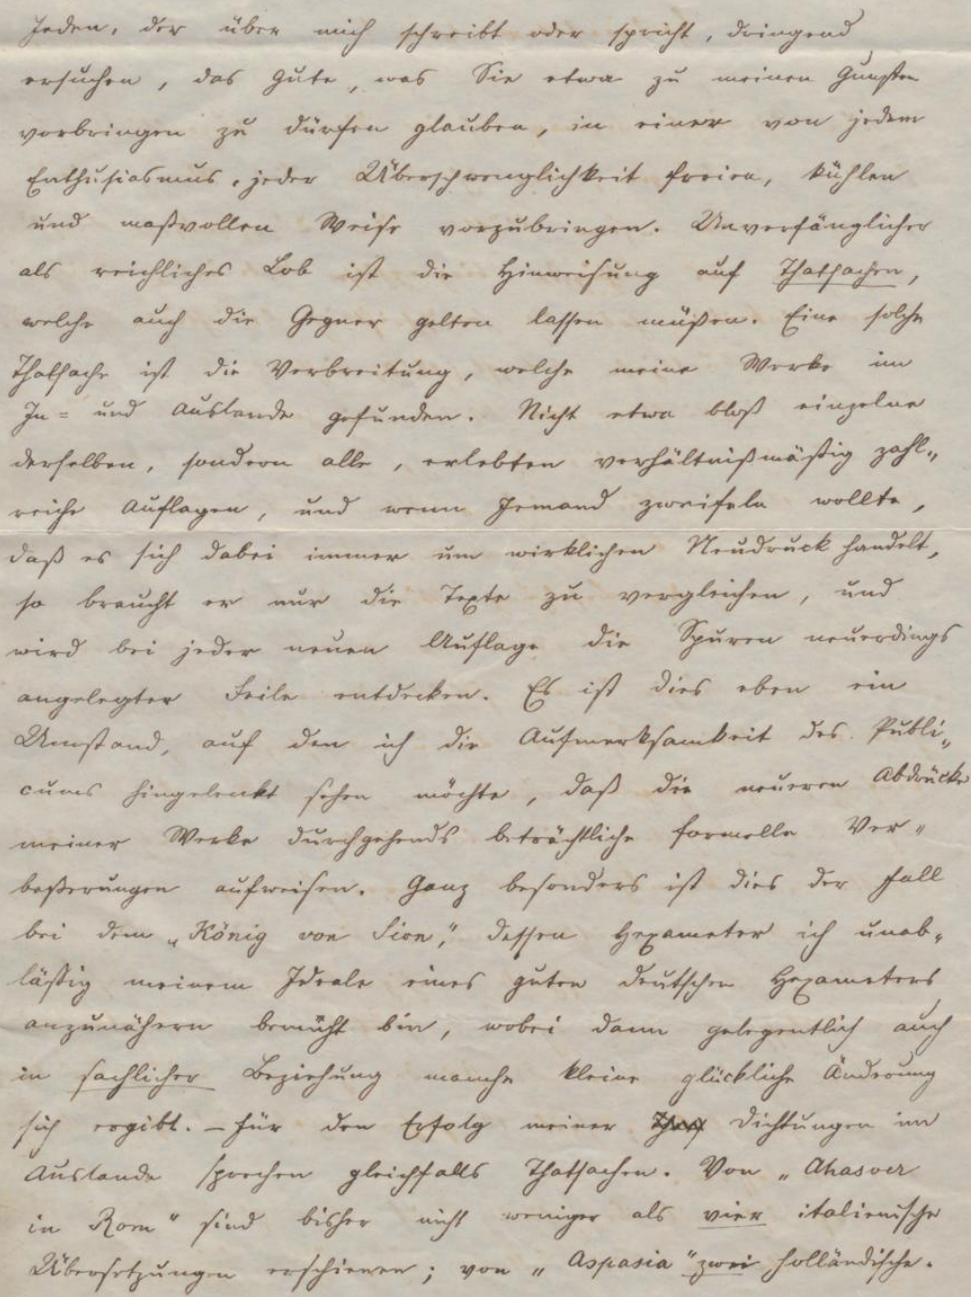 Jeden, der über mich schreibt oder spricht, dringend
ersuchen, das Gute, was Sie etwa zu meinen Gunsten
vorbringen zu dürfen glauben, in einer von jedem
Enthusiasmus, jeder Überschwenglichkeit freien, kühlen
und maßvollen Weise vorzubringen. Unverfänglicher
als reichliches Lob ist die Hinweisung auf Thatsachen,
welche auch die Gegner gelten lassen müßen. Eine solche
Thatsache ist die Verbreitung, welche meine Werke im
In= und Auslande gefunden. Nicht etwa bloß einzelne
derselben, sondern alle, erlebten verhältnißmäßig zahl„
reiche Auflagen, und wenn Jemand zweifeln wollte,
daß es sich dabei immer um wirklichen Neudruck handelt,
so braucht er nur die Texte zu vergleichen, und
wird bei jeder neuen Auflage die Spuren neuerdings
angelegter Feile entdecken. Es ist dies eben ein
Umstand, auf den ich die Aufmerksamkeit des Publi„
cums hingelenkt sehen möchte, daß die neueren Abdrücke
meiner Werke durchgehends beträchtliche formelle Ver„
beßerungen aufweisen. Ganz besonders ist dies der Fall
bei dem „König von Sion“, dessen Hexameter ich unab„
läßig meinem Ideale eines guten deutschen Hexameters
anzunähern bemüht bin, wobei dann gelegentlich auch
in sachlicher Beziehung manche kleine glückliche Änderung
sich ergibt. – Für den Erfolg meiner Dichtungen im
Auslande sprechen gleichfalls Thatsachen. Von „Ahasver
in Rom“ sind bisher nicht weniger als vier italienische
Übersetzungen erschienen; von „Aspasia“ zwei holländische.